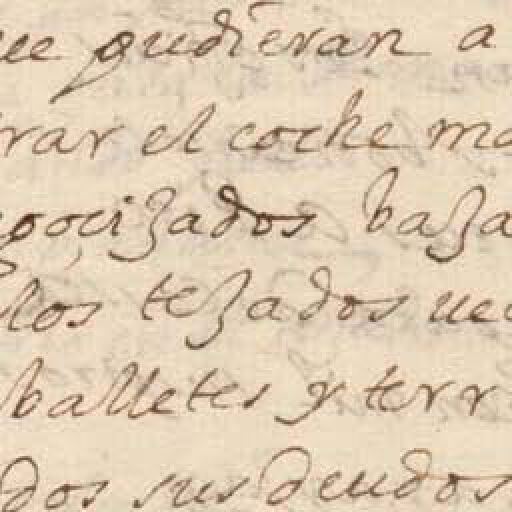 ue pudieran a
rar el coche ma
goçijados baja
los tejados ue
balletes y terr
dos sus deudos